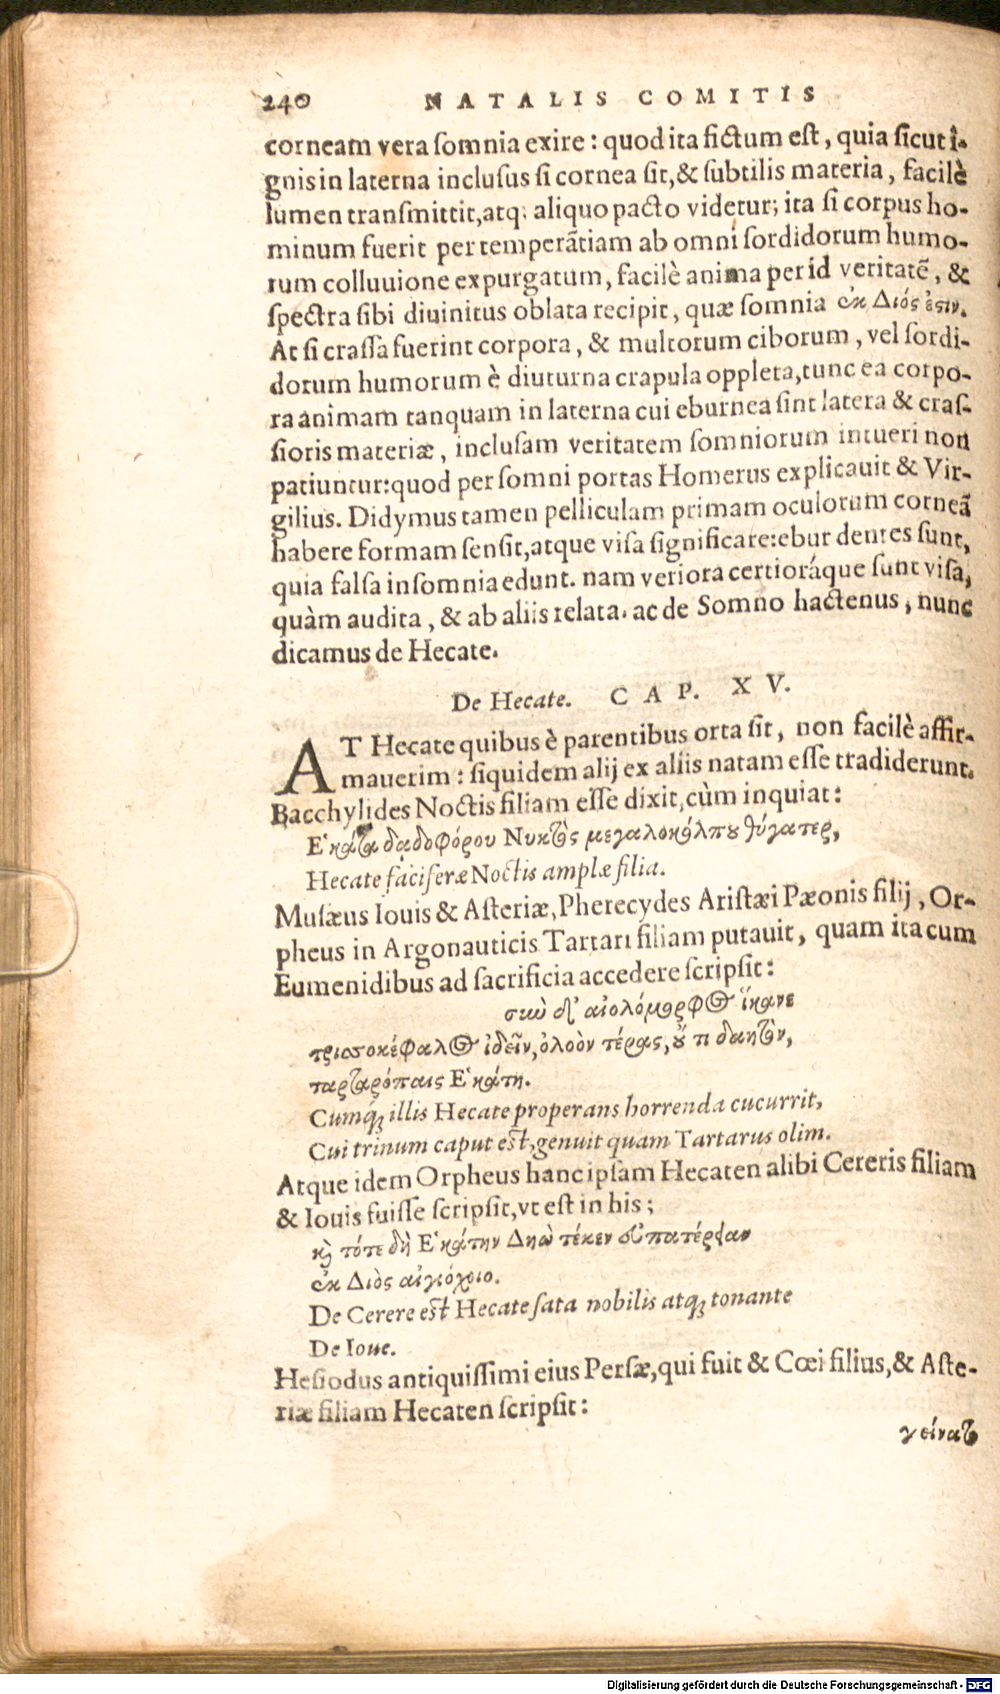 240 NATALIS COMITIS
corneam vera somnia exire: quod ita fictum est, quia sicut i-
gnis in laterna inclusus si cornea sit, & subtilis materia, facilè
lumen transmittit, atq; aliquo pacto videtur; ita si corpus ho-
minum fuerit per temperãtiam ab omni sordidorum humo-
rum colluuione expurgatum, facilè anima per id veritatẽ, &
spectra sibi diuinitus oblata recipit, quæ somnia ἐκ Διός ἐστιν.
At si crassa fuerint corpora, & multorum ciborum, vel sordi-
dorum humorum è diuturna crapula oppleta, tunc ea corpo-
ra animam tanquam in laterna cui eburnea sint latera & cras-
sioris materiæ, inclusam veritatem somniorum intueri non
patiuntur: quod per somni portas Homerus explicauit & Vir-
gilius. Didymus tamen pelliculam primam oculorum corneã
habere formam sensit, atque visa significare: ebur dentes sunt,
quia falsa insomnia edunt. nam veriora certioráque sunt visa,
quàm audita, & ab aliis relata. ac de Somno hactenus, nunc
dicamus de Hecate.
De Hecate. CAP. XV.
AT Hecate quibus è parentibus orta sit, non facilè affir-
mauerim: siquidem alij ex aliis natam esse tradiderunt.
Bacchylides Noctis filiam esse dixit, cùm inquiat:
Ἑκάτα δαδοφόρου Νυκτὸς μεγαλοκόλπου θύγατερ,
Hecate faciferæ Noctis amplæ filia.
Musæus Iouis & Asteriæ, Pherecydes Aristæi Pæonis filij, Or-
pheus in Argonauticis Tartari filiam putauit, quam ita cum
Eumenidibus ad sacrificia accedere scripsit:
σὺν δ' αἰολόμορφος ἵκανε
τρισσοκέφαλος ἰδεῖν, ὀλοὸν τέρας, οὔ τι δαητὸν,
ταρταρόπαις Ἑκάτη.
Cumq; illis Hecate properans horrenda cucurrit,
Cui trinum caput est, genuit quam Tartarus olim.
Atque idem Orpheus hanc ipsam Hecaten alibi Cereris filiam
& Iouis fuisse scripsit, vt est in his;
καὶ τότε δὴ Ἑκάτην Δηὼ τέκεν εὐπατέρειαν
ἐκ Διὸς αἰγιόχοιο.
De Cerere est Hecate sata nobilis atq; tonante
De Ioue.
Hesiodus antiquissimi eius Persæ, qui fuit & Cœi filius, & Aste-
riæ filiam Hecaten scripsit:
γείνατο
Digitalisierung gefördert durch die Deutsche Forschungsgemeinschaft - DFG